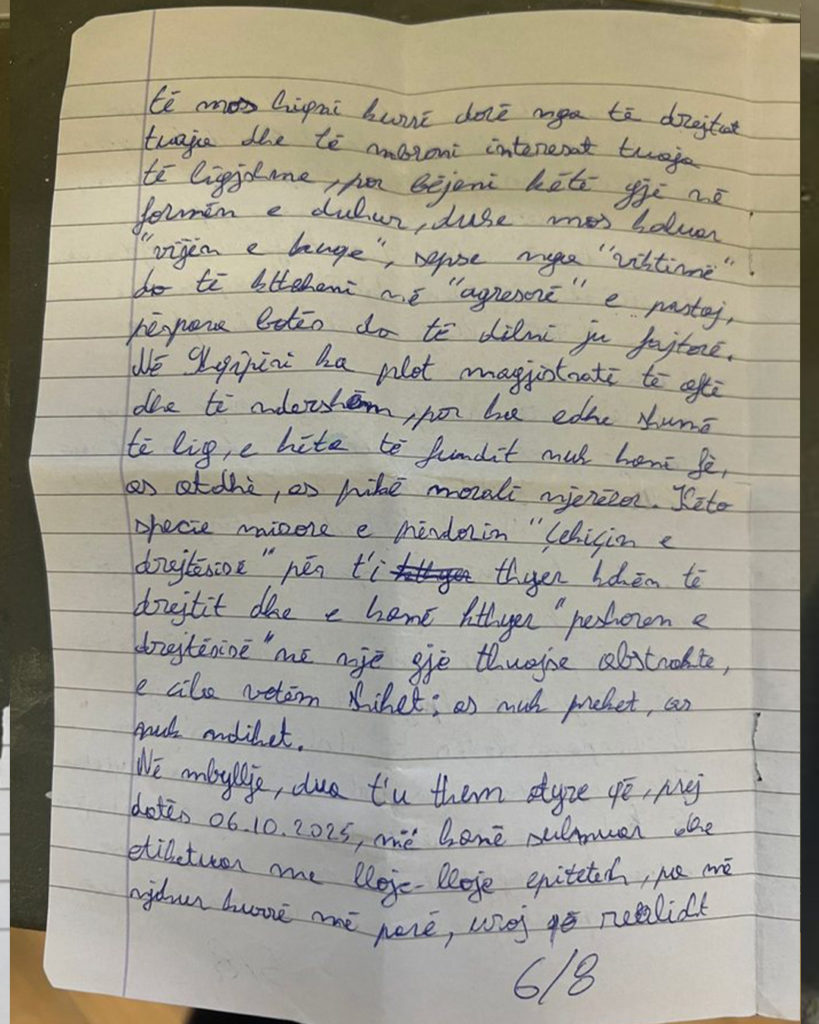 të mos hiqni kurrë dorë nga të drejtat
tuaja dhe të mbroni interesat tuaja
të ligjshme, por bëjeni këtë gjë në
formën e duhur, duke mos kaluar
"vijën e kuqe", sepse nga "viktimë"
do të ktheheni në "agresorë" e pastaj,
përpara botës do të dilni ju fajtorë.
Në Shqipëri ka plot magjistratë të aftë
dhe të ndershëm, por ka edhe shumë
të lig, e këta të fundit nuk kanë fè,
as atdhè, as pikë morali njerëzor. Këto
specie mizore e përdorin "çekiçin e
drejtësisë" për t'i kthyer thyer këmbën të
drejtit dhe e kanë kthyer "peshoren e
drejtësisë" në një gjë thuajse abstrakte,
e cila vetëm shihet; as nuk preket, as
nuk ndihet.
Në mbyllje, dua t'u them atyre që, prej
datës 06.10.2025, më kanë sulmuar dhe
etiketuar me lloje-lloje epitetesh, pa më
njohur kurrë më parë, uroj që realisht
6/8